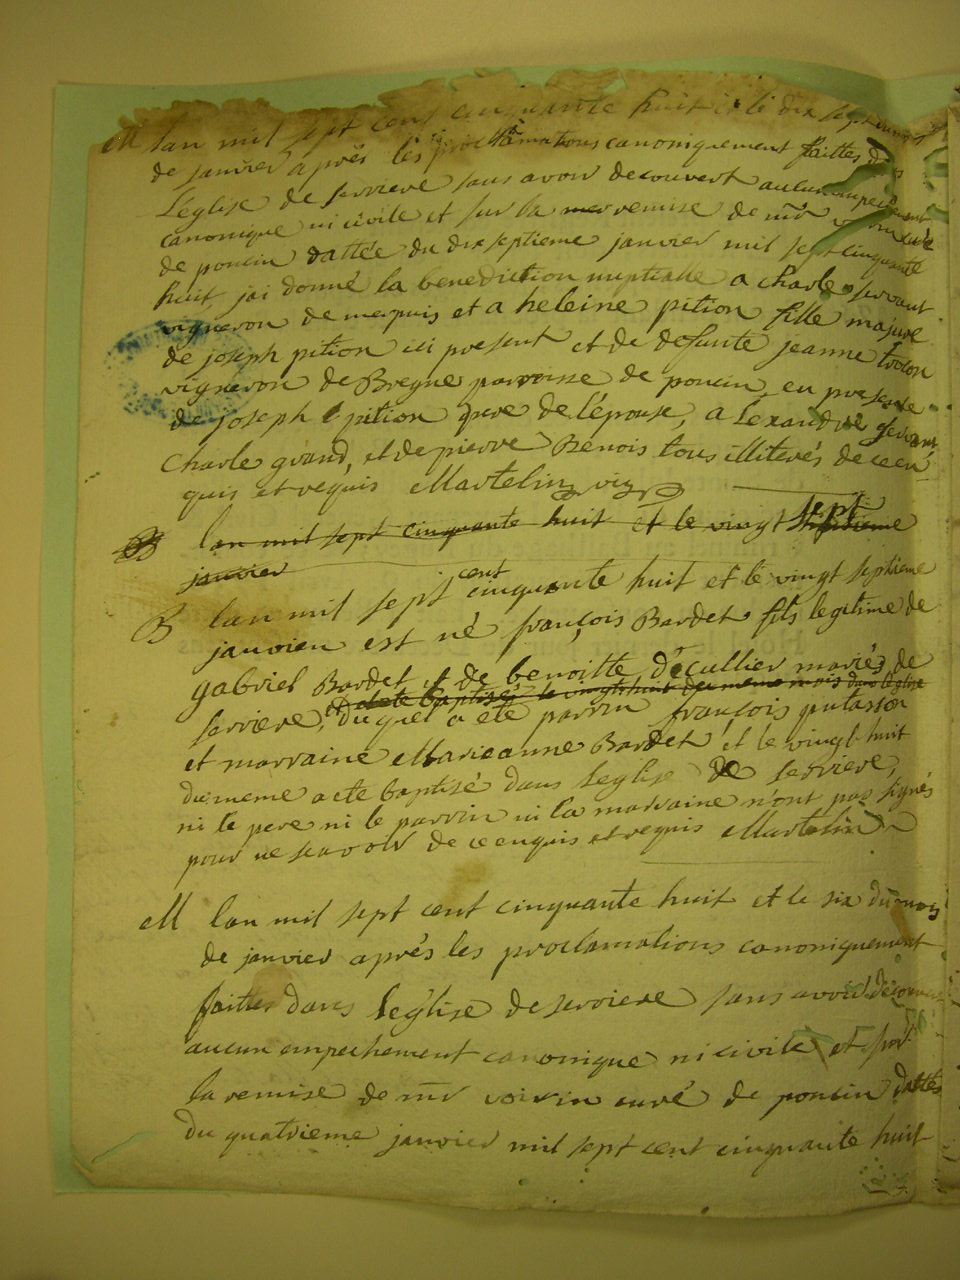 M lan mil sept cent cinquante huit et le dix sept du mois
de janvier après les proclamations canoniquement faittes dans
Léglise de serriere sans avoir decouvert aucun empechement
canonique ni civile et sur la remise de mr voirin curé
de poncin dattée du dix septieme janvier mil sept cinquante
huit jai donné la benediction nuptialle a charle servant
vigneron de merpuis et a heleine pition fille majure
de joseph pition ici present et de defunte jeanne
vigneron de Bregne parroisse de poncin, en presence
de joseph pition pere de lépouse, a Lexandre servant
charle girand, et de pierre Benois tous illiterés de ce en
quis et requis Martelin vic
B lan mil sept cinquante huit et le vingt sept
janvier
B lan mil sept cent cinquante huit et le vingt septieme
janvien est né françois Bardet fils legitime de
gabriel Bardet et de benoitte décullier mariés de
et a ete baptisé le vingt huit du meme mois dans léglise
serriere, duquel a eté parrin françois putasson
et marraine Marieanne Bardet et le vingt huit
du meme a ete baptisé dans leglise de serriere,
ni le pere ni le parrin ni la marraine n'ont pas signés
pour ne scavoir de ce enquis et requis Martelin
M lan mil sept cent cinquante huit et le six du mois
de janvier après les proclamations canoniquement
faittes dans léglise de serriere sans avoir décou
aucun empechement canonique ni civile et sur
la remise de mr voirin curé de poncin dattés
du quatrieme janvier mil sept cent cinquante huit